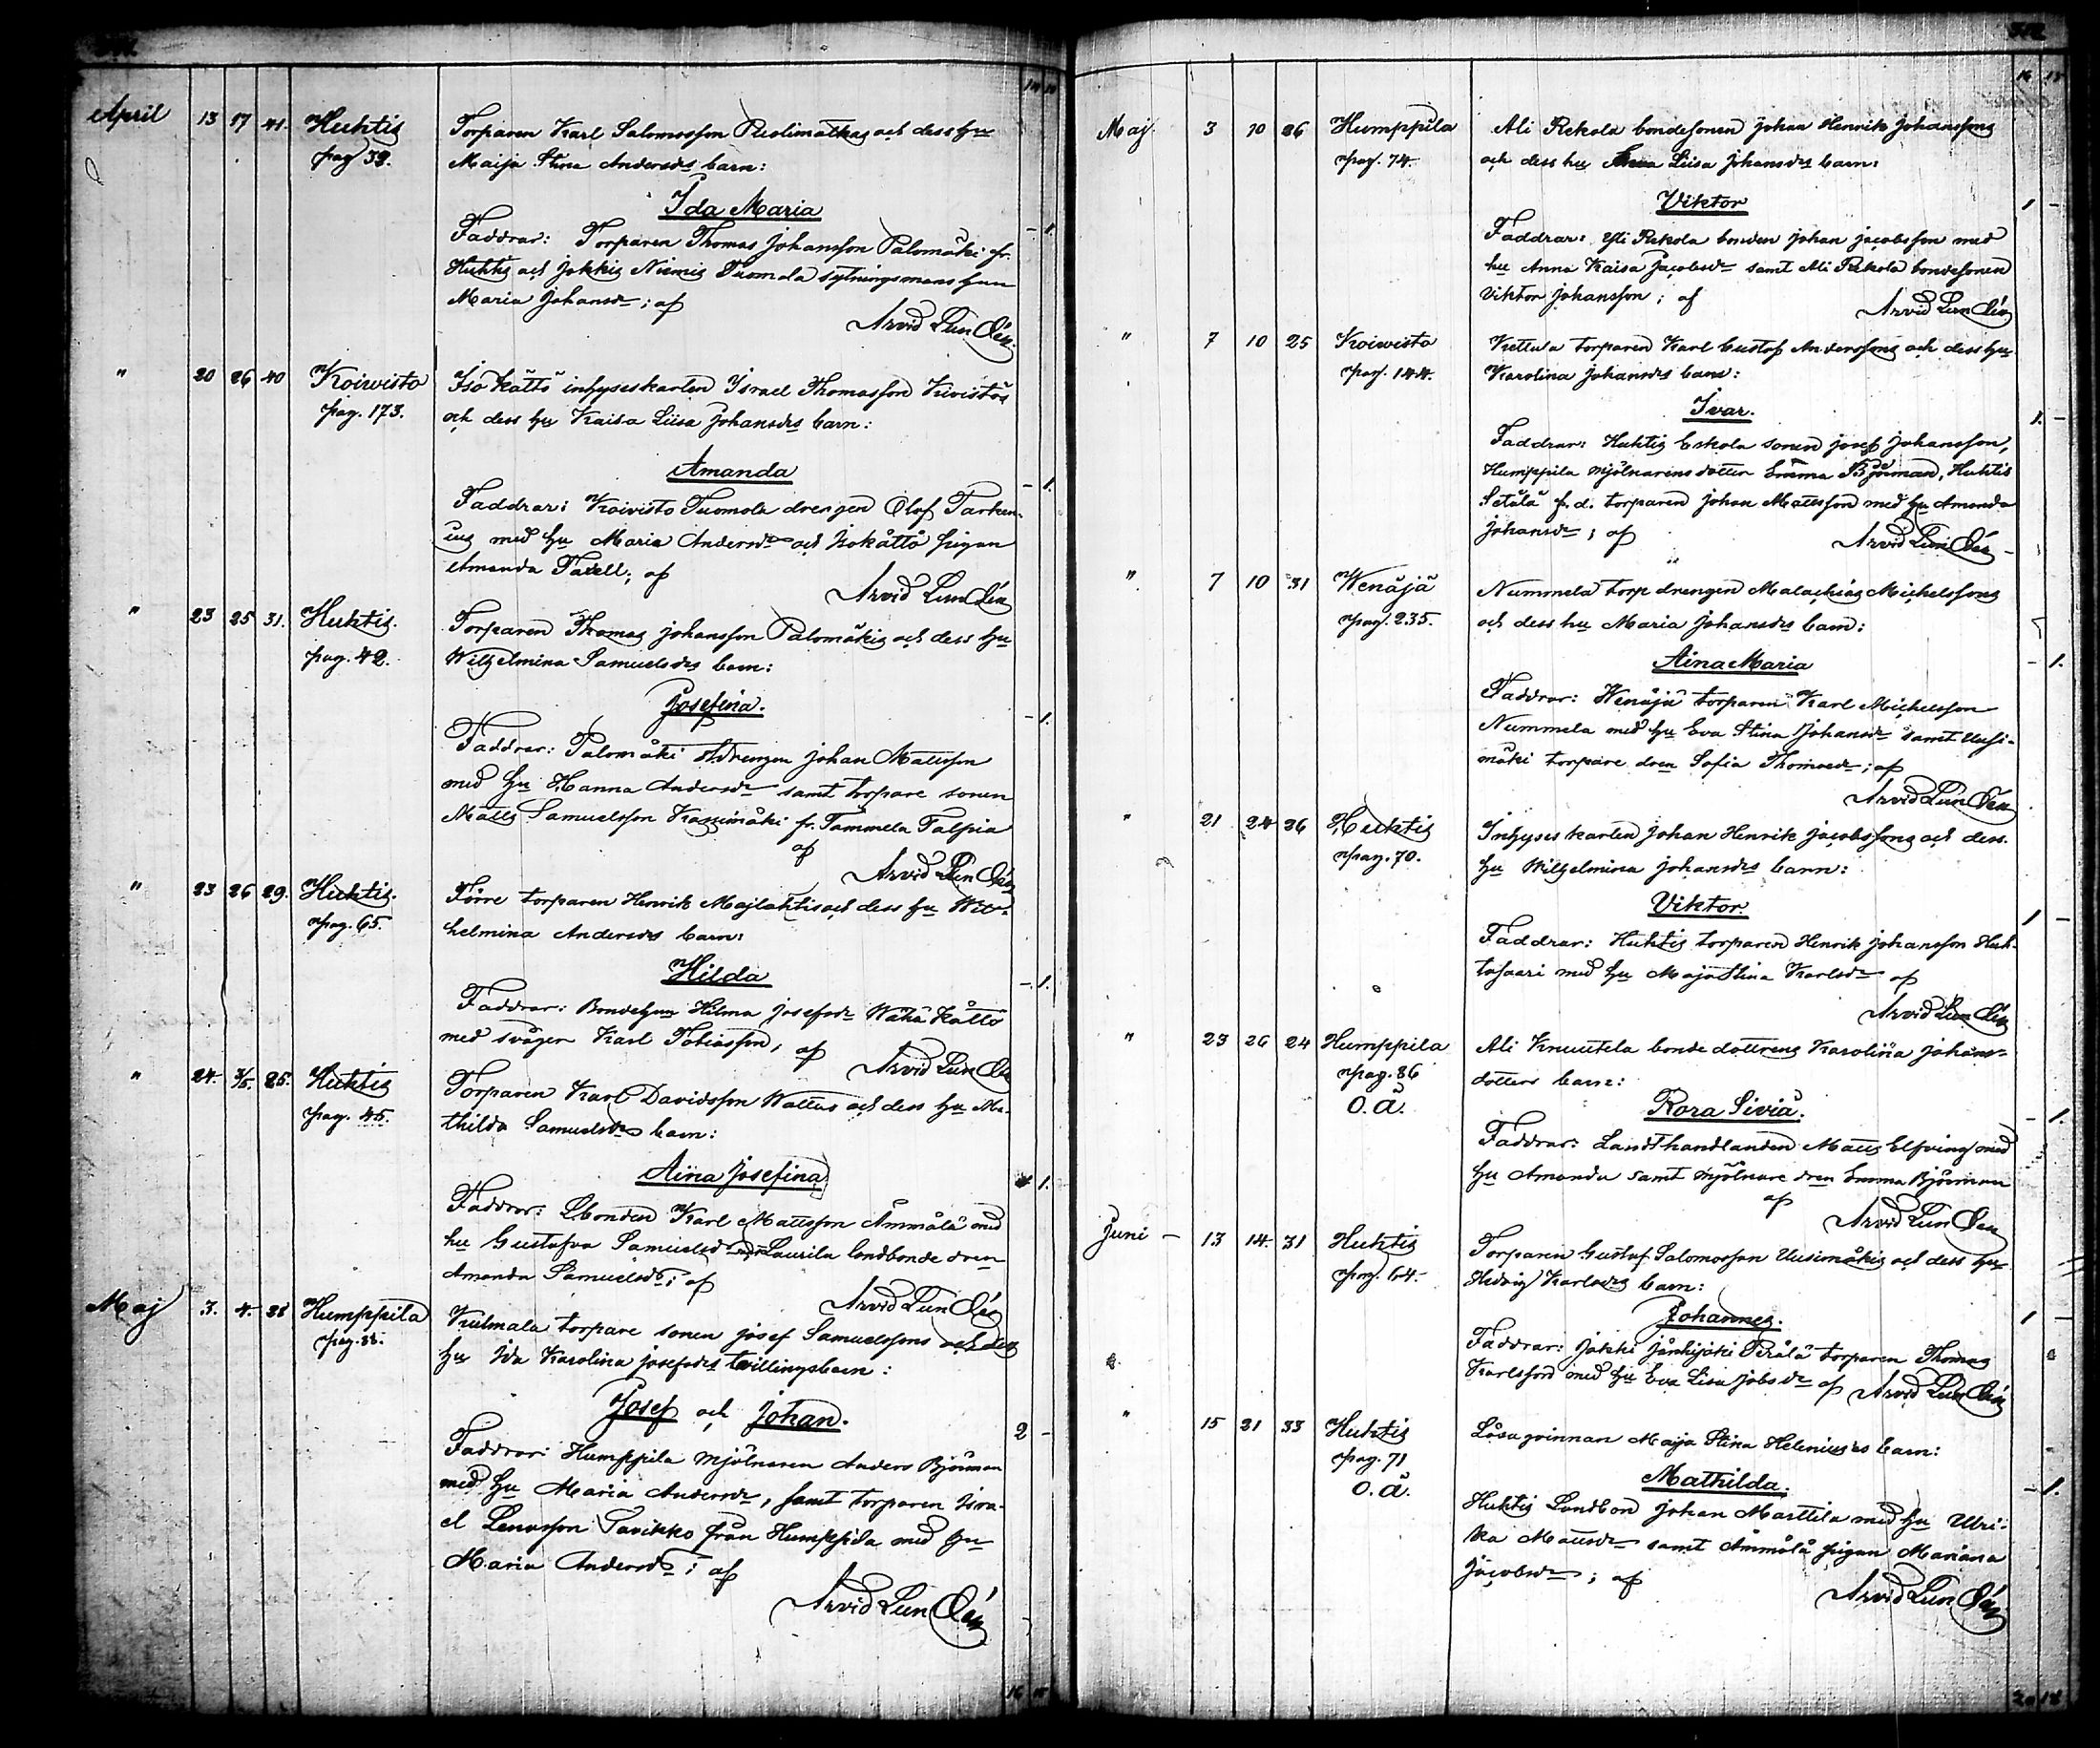 April 13 17 41. Huhtis Torparen Karl Salomosson Puolimatkas och dess hu
pag 38. Maija Stina Andersdrs barn:
Ida Maria - 1.
Faddrar: Torparen Thomas Johansson Palomäki fr.
Huhtis och Jokkis Niemis Tuomola sytningsmans hun
Maria Johansdr; af
Arvid Lundén.
" 20 26 40 Koivisto Iso Kåttö inhyseskarlen Israel Thomasson Kivistös
pag. 173. och dess hu Kaisa Liisa Johansdrs barn:
Amanda - 1.
Faddrar: Koivisto Tuomola drengen Olof Parken-
ius med hu Maria Andersdr och Isokåttö pigan
Amanda Farell; af
Arvid Lundén
" 23 25 31. Huhtis. Torparen Thomas Johansson Palomäkis och dess hu
pag. 42. Wilhelmina Samuelsdrs barn:
Josefina. - 1.
Faddrar: Palomäki st.drengen Johan Mattsson
med hu Hanna Andersdr samt torpare sonen
Matts Samuelsson fr. Tammela Talpia
af
Arvid Lundén
" 23 26 29. Huhtis. Förre torparen Henrik Majlahtis och dess hu Wil-
pag. 65. helmina Andersdrs barn:
Hilda - 1.
Faddrar: Bondehun Hilma Josefsdr Wähä Kåttö
med svåger Karl Tobiasson, af
Arvid Lundén
" 24. 3/5. 25. Huhtis Torparen Karl Davidsson Wattus och dess hu Ma-
pag. 45. thilda Samuelsdrs barn:
Aina Josefina 1.
Faddrar: Lbonden Karl Mattsson Ämmälä med
hu Gustafva Samuelsdr Laurila landbonde dren
Amanda Samuelsdr; af
Arvid Lundén
Maj 3. 4. 28 Humppila Kulmala torpare sonen Josef Samuelssons och dess
pag. 88. hu Ida Karolina Josefsdrs tvillingsbarn:
Josef och Johan. 2 -
Faddrar: Humppila mjölnaren Anders Björman
med hu Maria Andersdr, samt torparen Isra-
el Lenusson Pavikko från Humppila med hu
Maria Andersdr; af
Arvid Lundén
16 18
16 18
Maj. 3 10 26 Humppila Ali Rekola bondesonen Johan Henrik Johanssons
pag. 74. och dess hu Anna Liisa Johansdrs barn:
Viktor 1 -
Faddrar: Yli Rekola bonden Johan Jacobsson med
hu Anna Kaisa Jacobsdr samt Ali Rekola bondesonen
Viktor Johansson; af
Arvid Lundén
" 7 10 25 Koivisto Kettula torparen Karl Gustaf Anderssons och dess hu
pag. 144. Karolina Johansdrs barn:
Ivar. 1. -
Faddrar: Huhtis Eskola sonen Josef Johansson,
Humppila mjölnarens dotter Emma Björman, Huhtis
Setälä f.d. torparen Johan Mattsson med hu Amanda
Johansdr; af
Arvid Lundén
" 7 10 31 Wenäjä Nummela torp drengen Malachias Michelssons
pag. 235. och dess hu Maria Johansdrs barn:
Aina Maria - 1.
Faddrar: Wenäjä torparen Karl Michelsson
Nummela med hu Eva Stina Johansdr samt Uusi-
mäki torpare dren Sofia Thomasdr; af
Arvid Lundén
" 21 24 36 Huhtis Inhyses karlen Johan Henrik Jacobssons och dess
pag. 70. hu Wilhelmina Johansdrs barn:
Viktor. 1 -
Faddrar: Huhtis torparen Henrik Johansson Huh-
tasaari med hu Maja Stina Karlsdr af
Arvid Lundén
" 23 26 24 Humppila Ali Knuutila bonde dottrens Karolina Johans-
pag. 86 dotters barn:
O.Ä. Rora Sivia. - 1.
Faddrar: Landthandlanden Matts Elfving med
hu Amanda samt mjölnare dren Emma Björman
af
Arvid Lundén
Juni - 13 14. 31 Huhtis Torparen Gustaf Salomosson Uusimäkis och dess hu
pag. 64. Hedvig Karlsdrs barn:
Johannes. 1 -
Faddrar: Jokki Jänhijoki Perälä torparen Thomas
Karlsson med hu Eva Lisa Jobsdr af Arvid Lundén
" 15 21 33 Huhtis Lösa qvinnan Maija Stina Helenius's barn:
pag. 71
O.Ä. Mathilda. - 1.
Huhtis Landbon Johan Marttila med hu Ulri-
ka Mattsdr samt Ämmälä pigan Mariana
Jacobsdr; af
Arvid Lundén
20 18